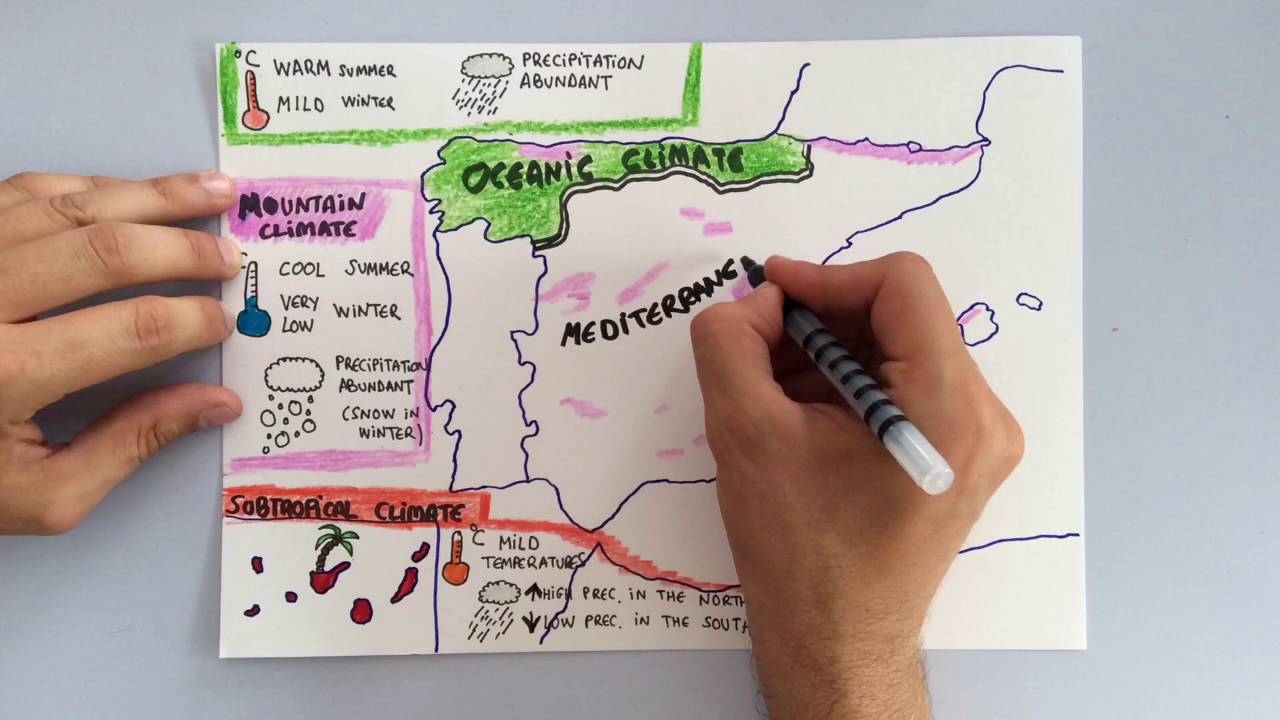 °C WARM SUMMER
MILD WINTER
PRECIPITATION
ABUNDANT
OCEANIC CLIMATE
MOUNTAIN
CLIMATE
COOL SUMMER
VERY
LOW WINTER
PRECIPITATION
ABUNDANT
(SNOW IN
WINTER)
MEDITERRANE
SUBTROPICAL CLIMATE
°C MILD
TEMPERATURES
↑HIGH PREC. IN THE NORTH
↓LOW PREC. IN THE SOUTH